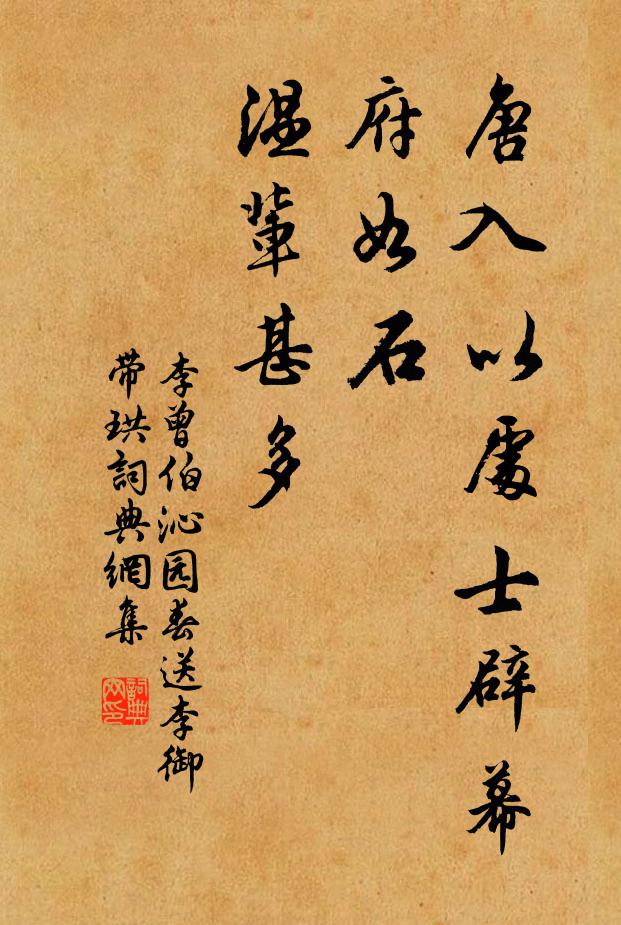 唐入以處士辟幕
府如石
溫輩甚多
李曾伯沁园春送李御
带珙詞典網集
詞典网印